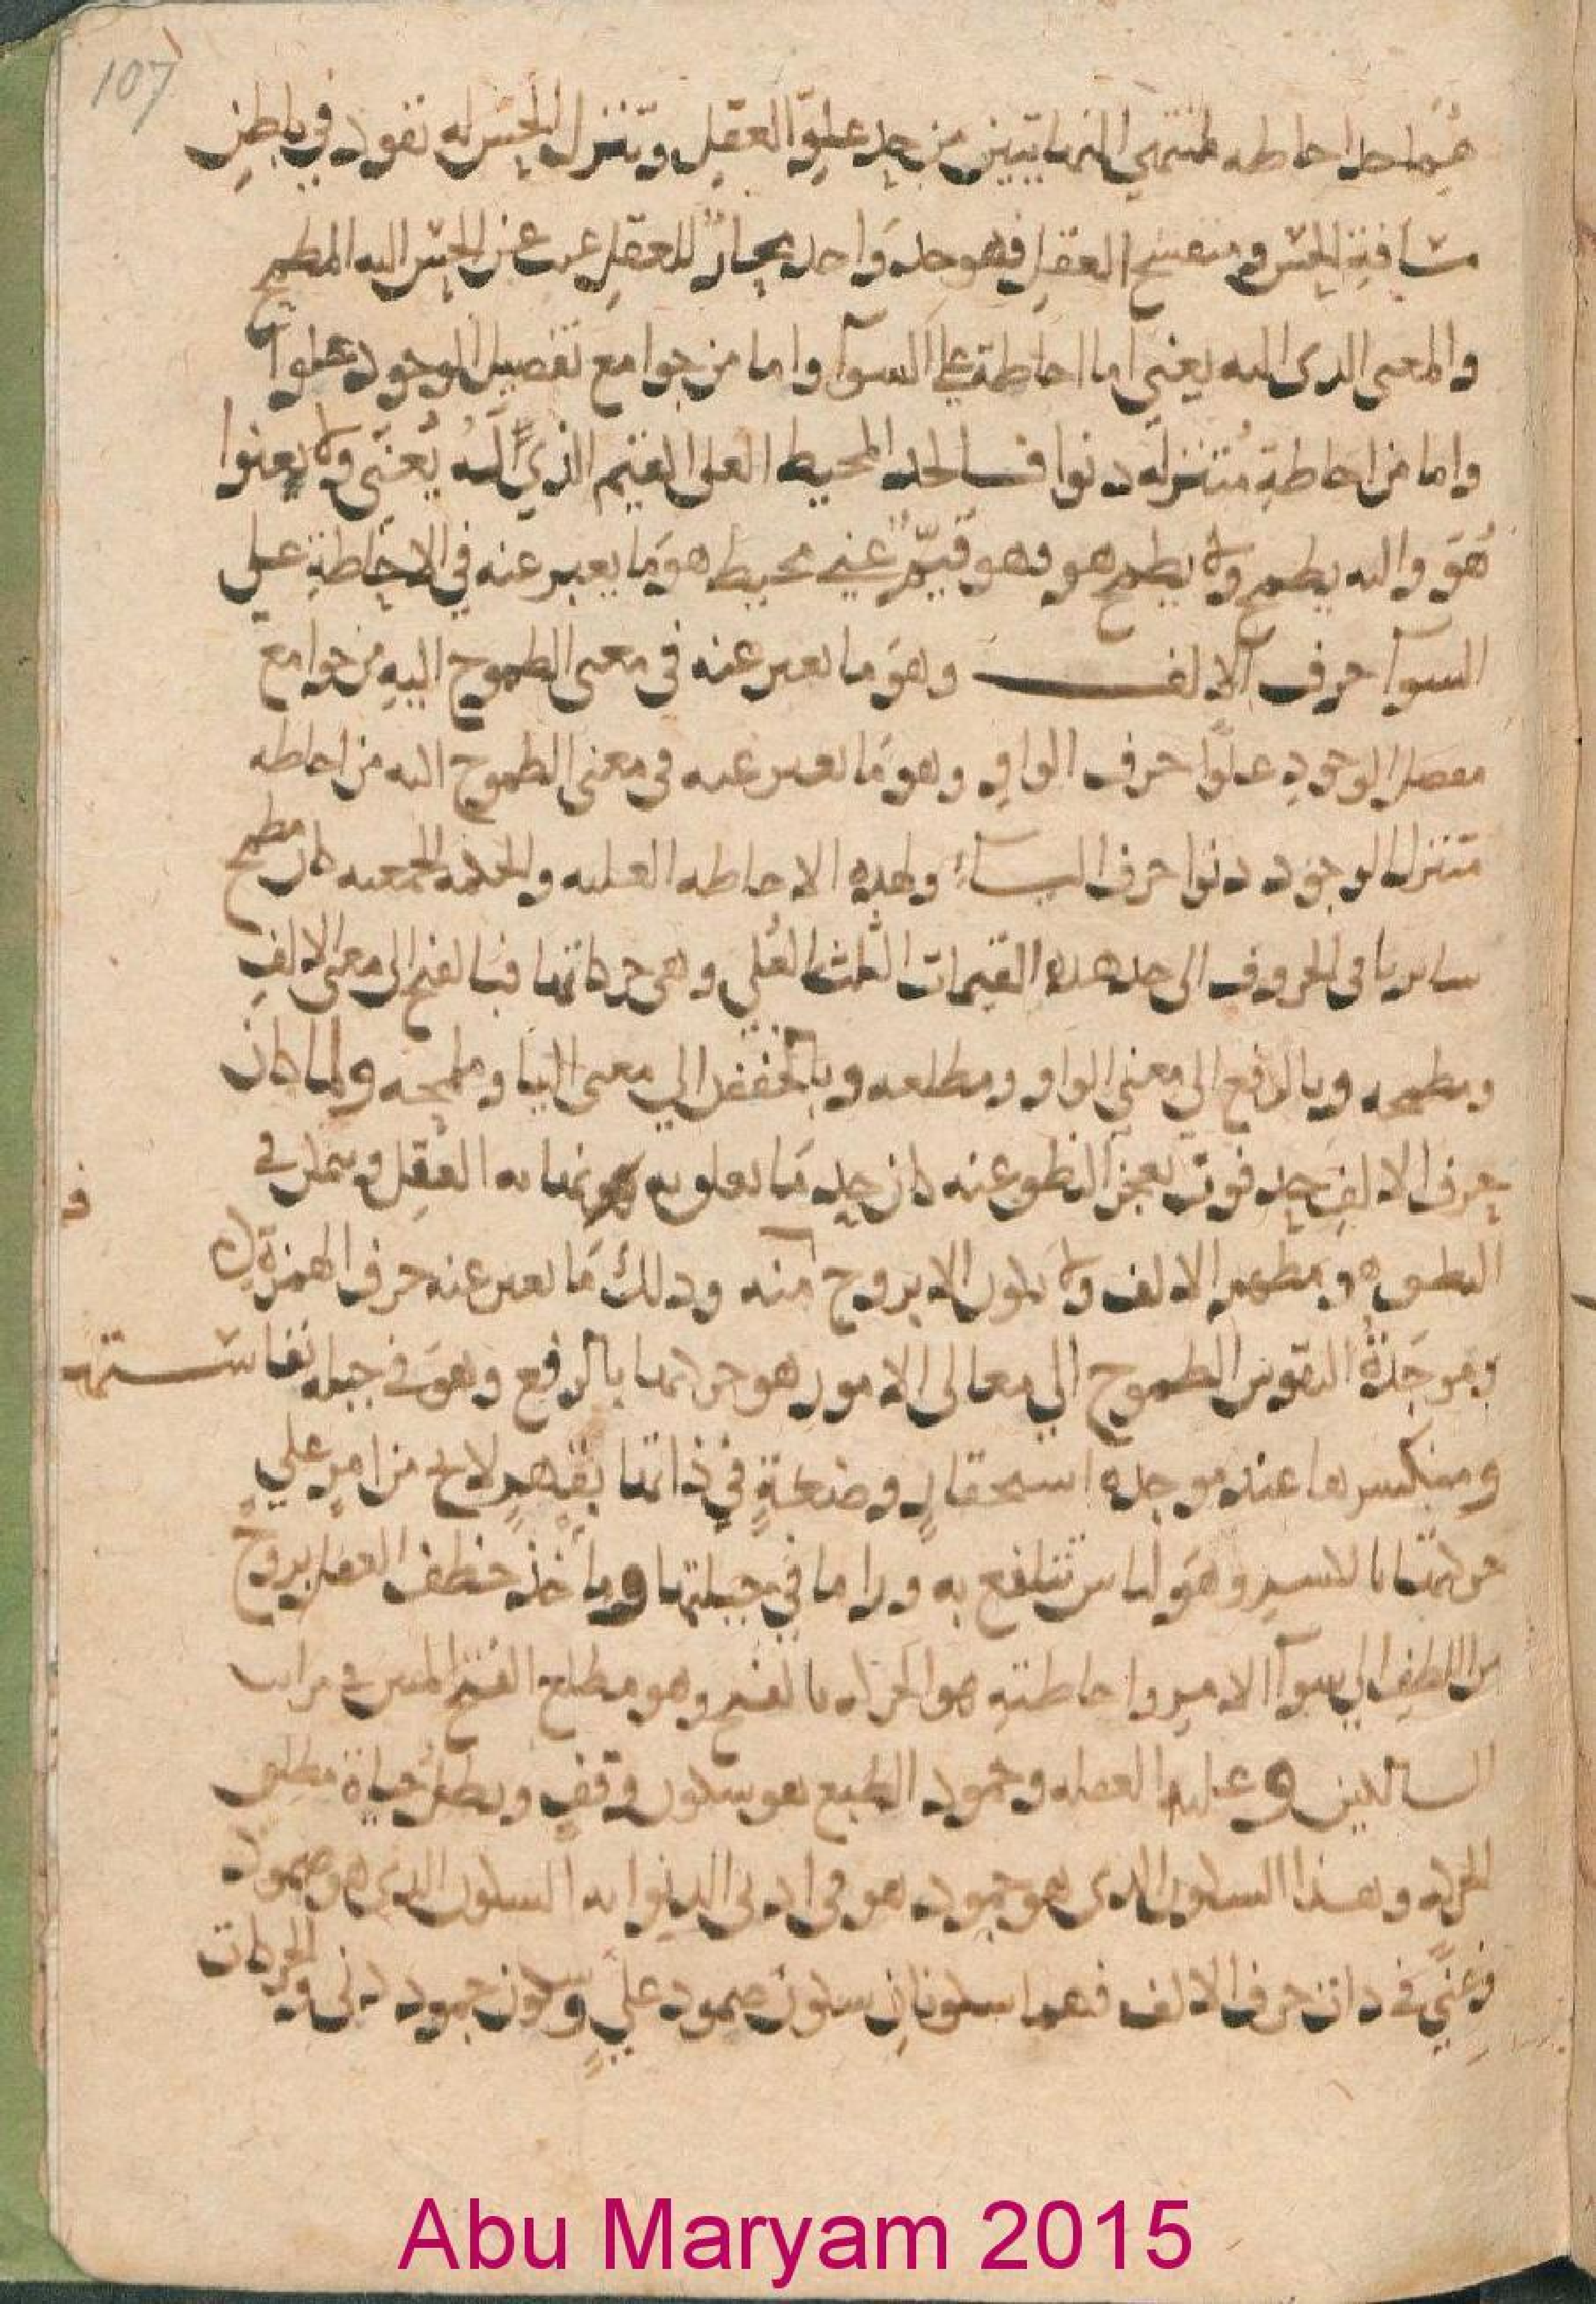 107
هما حد احاطه لمنتهى النهايتين من حد علو العقل وتنزل الحس له نفوذ في باطن
كثافة الحس ومنفسح العقل فهو حد واحد للعقل عن الحس اليه المطمح
والمعنى الدى اليه يعنى اما احاطة على السوآ واما من جوامع تفصيل الوجود علوا
واما من احاطة متنزله دنوا فـالحد المحيط العلى القيم الذي له يُعنى ولا يعنوا
هُوَ واليه يطمح ولا يطمح هو فهو قيّم غني محيط هو ما يعبر عنه في الاحاطة على
السوآ حرف الالف وهو ما يعبر عنه في معنى الطموح اليه من جوامع
مفصل الوجود علوا حرف الواو وهو ما يعبر عنه في معنى الطموح اليه من احاطه
متنزل الوجود دنوا حرف اليـاء ولهذه الاحاطه العليه والجمعيه كان مطمح
ساير باقي الحروف الى حد هذه القيمات الثلث العُلى وهي حركاتها فبالفتح الى معنى الالف
ومطمحه وبالرفع الى معنى الواو ومطلعه وبالخفض الى معنى اليا وملمحه ولما كان
حرف الالف حد فوت يعجز النطق عنه كان حد ما يعلو به نهايه العقل في
النطق هو مظهر الالف ولا يكون الا بروح منه وذلك ما يعبر عنه حرف الهمزة
ومرجدة النفوس الطموح الي معالى الامور هو حركتها بالرفع وهو في جبله نفاستها
ومنكسرها عند موجده استحقار وضعة في ذاتها بقهر لاح من امر علي
حركتها بالكسر وهو لباس تتلفع به ورا ما في جبلتها وما خذ خطف العقل بروح
من اللطف الي سوآ الامر واحاطته هو الحركه بالفتح وهو مطلع الفتح في مراتب
السالكين وعليه الغفله وجمود الطبع هو سكون وقف
الحركه وهذا السكون الذى هو جمود هو في ادنى الدنوا به السكون الذى هو صمود
وغني في ذات حرف الالف فهما سكونان سكون صمود علي وسكون جمود دني والحركات
Abu Maryam 2015